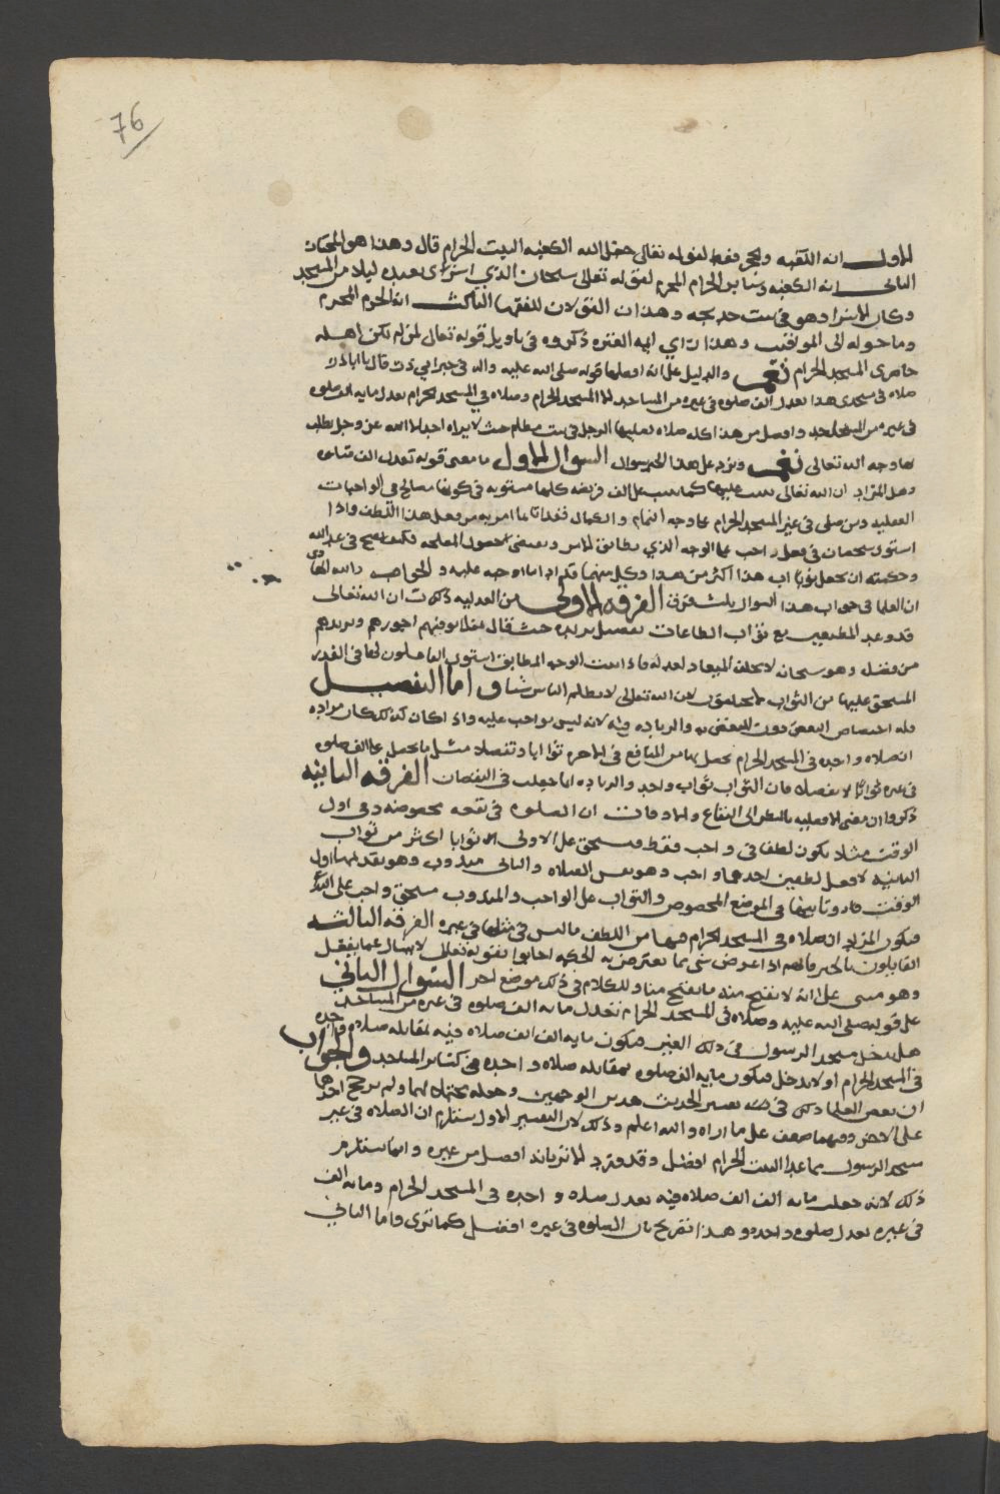 76
الاول انه الكعبه والحجر فقط لقوله تعالى جعل الله الكعبه البيت الحرام قال وهذا هو المختار
الثاني انه الكعبه وسائر الحرام المحرم لقوله تعالى سبحان الذي اسرى بعبده ليلا من المسجد
وكان الاسرا وهو في بيت خديجه وهذان القولان للفقها الثالث انه الحرم المحرم
وما حوله الى المواقيت وهذا راي ايمه العتره ذكروه في تاويل قوله تعالى لمن لم يكن اهله
حاضرى المسجد الحرام نعم والدليل على انه افضلها قوله صلى الله عليه واله في خبر ابي ذر قال يا ابا ذر
صلاه في مسجدي هذا تعدل الف صلوه في غيره من المساجد الا المسجد الحرام وصلاه في المسجد الحرام تعدل مايه الف صلوه
في غيره من المساجد وافضل من هذا كله صلاه يصليها الرجل في بيت مظلم حيث لا يراه احد الا الله عز وجل يطلب
بها وجه الله تعالى نعم ويرد على هذا الخبر سوال السوال الاول ما معنى قوله تعدل الف صلوه
وهل المراد ان الله تعالى يثيب عليها كما يثيب على الف فريضه كلها مستويه في كونها مصالح في الواجبات
العقليه ومن صلى في غير المسجد الحرام على وجه التمام والكمال فقد اتا بما امر به من فعل هذا اللطف واذا
استوت صلاتان في فعل واجب على الوجه الذي يطابق الامر ويقتضي حصول المصلحه فكيف يصح في عدل الله
وحكمته ان يجعل ثواب هذا اكثر من هذا وكل منهما قد ادا ما اوجبه عليه والجواب والله الهادي
ان العلما في جواب هذا السوال ثلث فرق الفرقه الاولى من العدليه ذكرت ان الله تعالى
قد وعد المطيعين مع ثواب الطاعات تفضل يزيده حيث قال تعالى ليوفيهم اجورهم ويزيدهم
من فضله وهو سبحانه لا يخلف الميعاد لعدله فاذا اتت الوجه المطابق استوى الفاعلون لها في القدر
المستحق عليها من الثواب لان الله تعالى لا يظلم الناس شيئا واما التفضيل
فله اختصاص البعض دون البعض به والزياده فيه لانه ليس بواجب عليه واذا كان كذلك كان مراده
ان صلاه واحده في المسجد الحرام يحصل بها من المنافع في الاخره ثوابا وتفضلا مثل ما يحصل على الف صلوه
في غيره ثوابا لا تفضلا فان الثواب ثواب واحد والزياده انما جعلت في التفضل الفرقه الثانيه
ذكروا ان معنى الافضليه بالنظر الى البقاع والاوقات ان الصلوه في بقعه مخصوصه وفي اول
الوقت مثلا يكون لطفا في واجب فقط فيستحق على الاولى ثوابا اكثر من ثواب
الثانيه لا فعل لطفين احدهما واجب وهو نفس الصلاه والثاني مندوب وهو تقديمها اول
الوقت وتاديتها في الموضع المخصوص والثواب على الواجب والمندوب مستحق واجب على الله
فيكون المراد ان صلاه في المسجد الحرام فيها من اللطف ما ليس في مثلها في غيره الفرقه الثالثه
القايلون بالجبر فانهم اذا عورض شي مما يعترض به الحكمه اجابوا بقوله تعالى لا يسال عما يفعل
وهو مبني على انه لا يقبح منه ما يقبح منا وللكلام في ذلك موضع اخر السوال الثاني
على قوله صلى الله عليه وصلاه في المسجد الحرام تعدل مايه الف صلوه في غيره من المساجد
هل يدخل مسجد الرسول في ذلك الغير فيكون مايه الف الف صلاه فيه بمقابله صلاه واحده
في المسجد الحرام او لا يدخل فيكون مايه الف صلوه بمقابله صلاه واحده في سائر المساجد والجواب
ان بعض العلما ذكر في تفسير الحديث هذين الوجهين وجعله محتملا لهما ولم يرجح احدهما
على الاخر وفيهما ضعف على ما اراه والله اعلم وذلك لان التفسير الاول يستلزم ان الصلاه في غير
مسجد الرسول مما عدا البيت الحرام افضل وقد ورد الاثر بانه افضل من غيره وانما يستلزم
ذلك لانه جعلت مايه الف الف صلاه فيه تعدل صلاه واحده في المسجد الحرام ومايه الف
في غيره تعدل صلوه واحده وهذا تصريح بان الصلوه في غيره افضل كما ترى واما الثاني